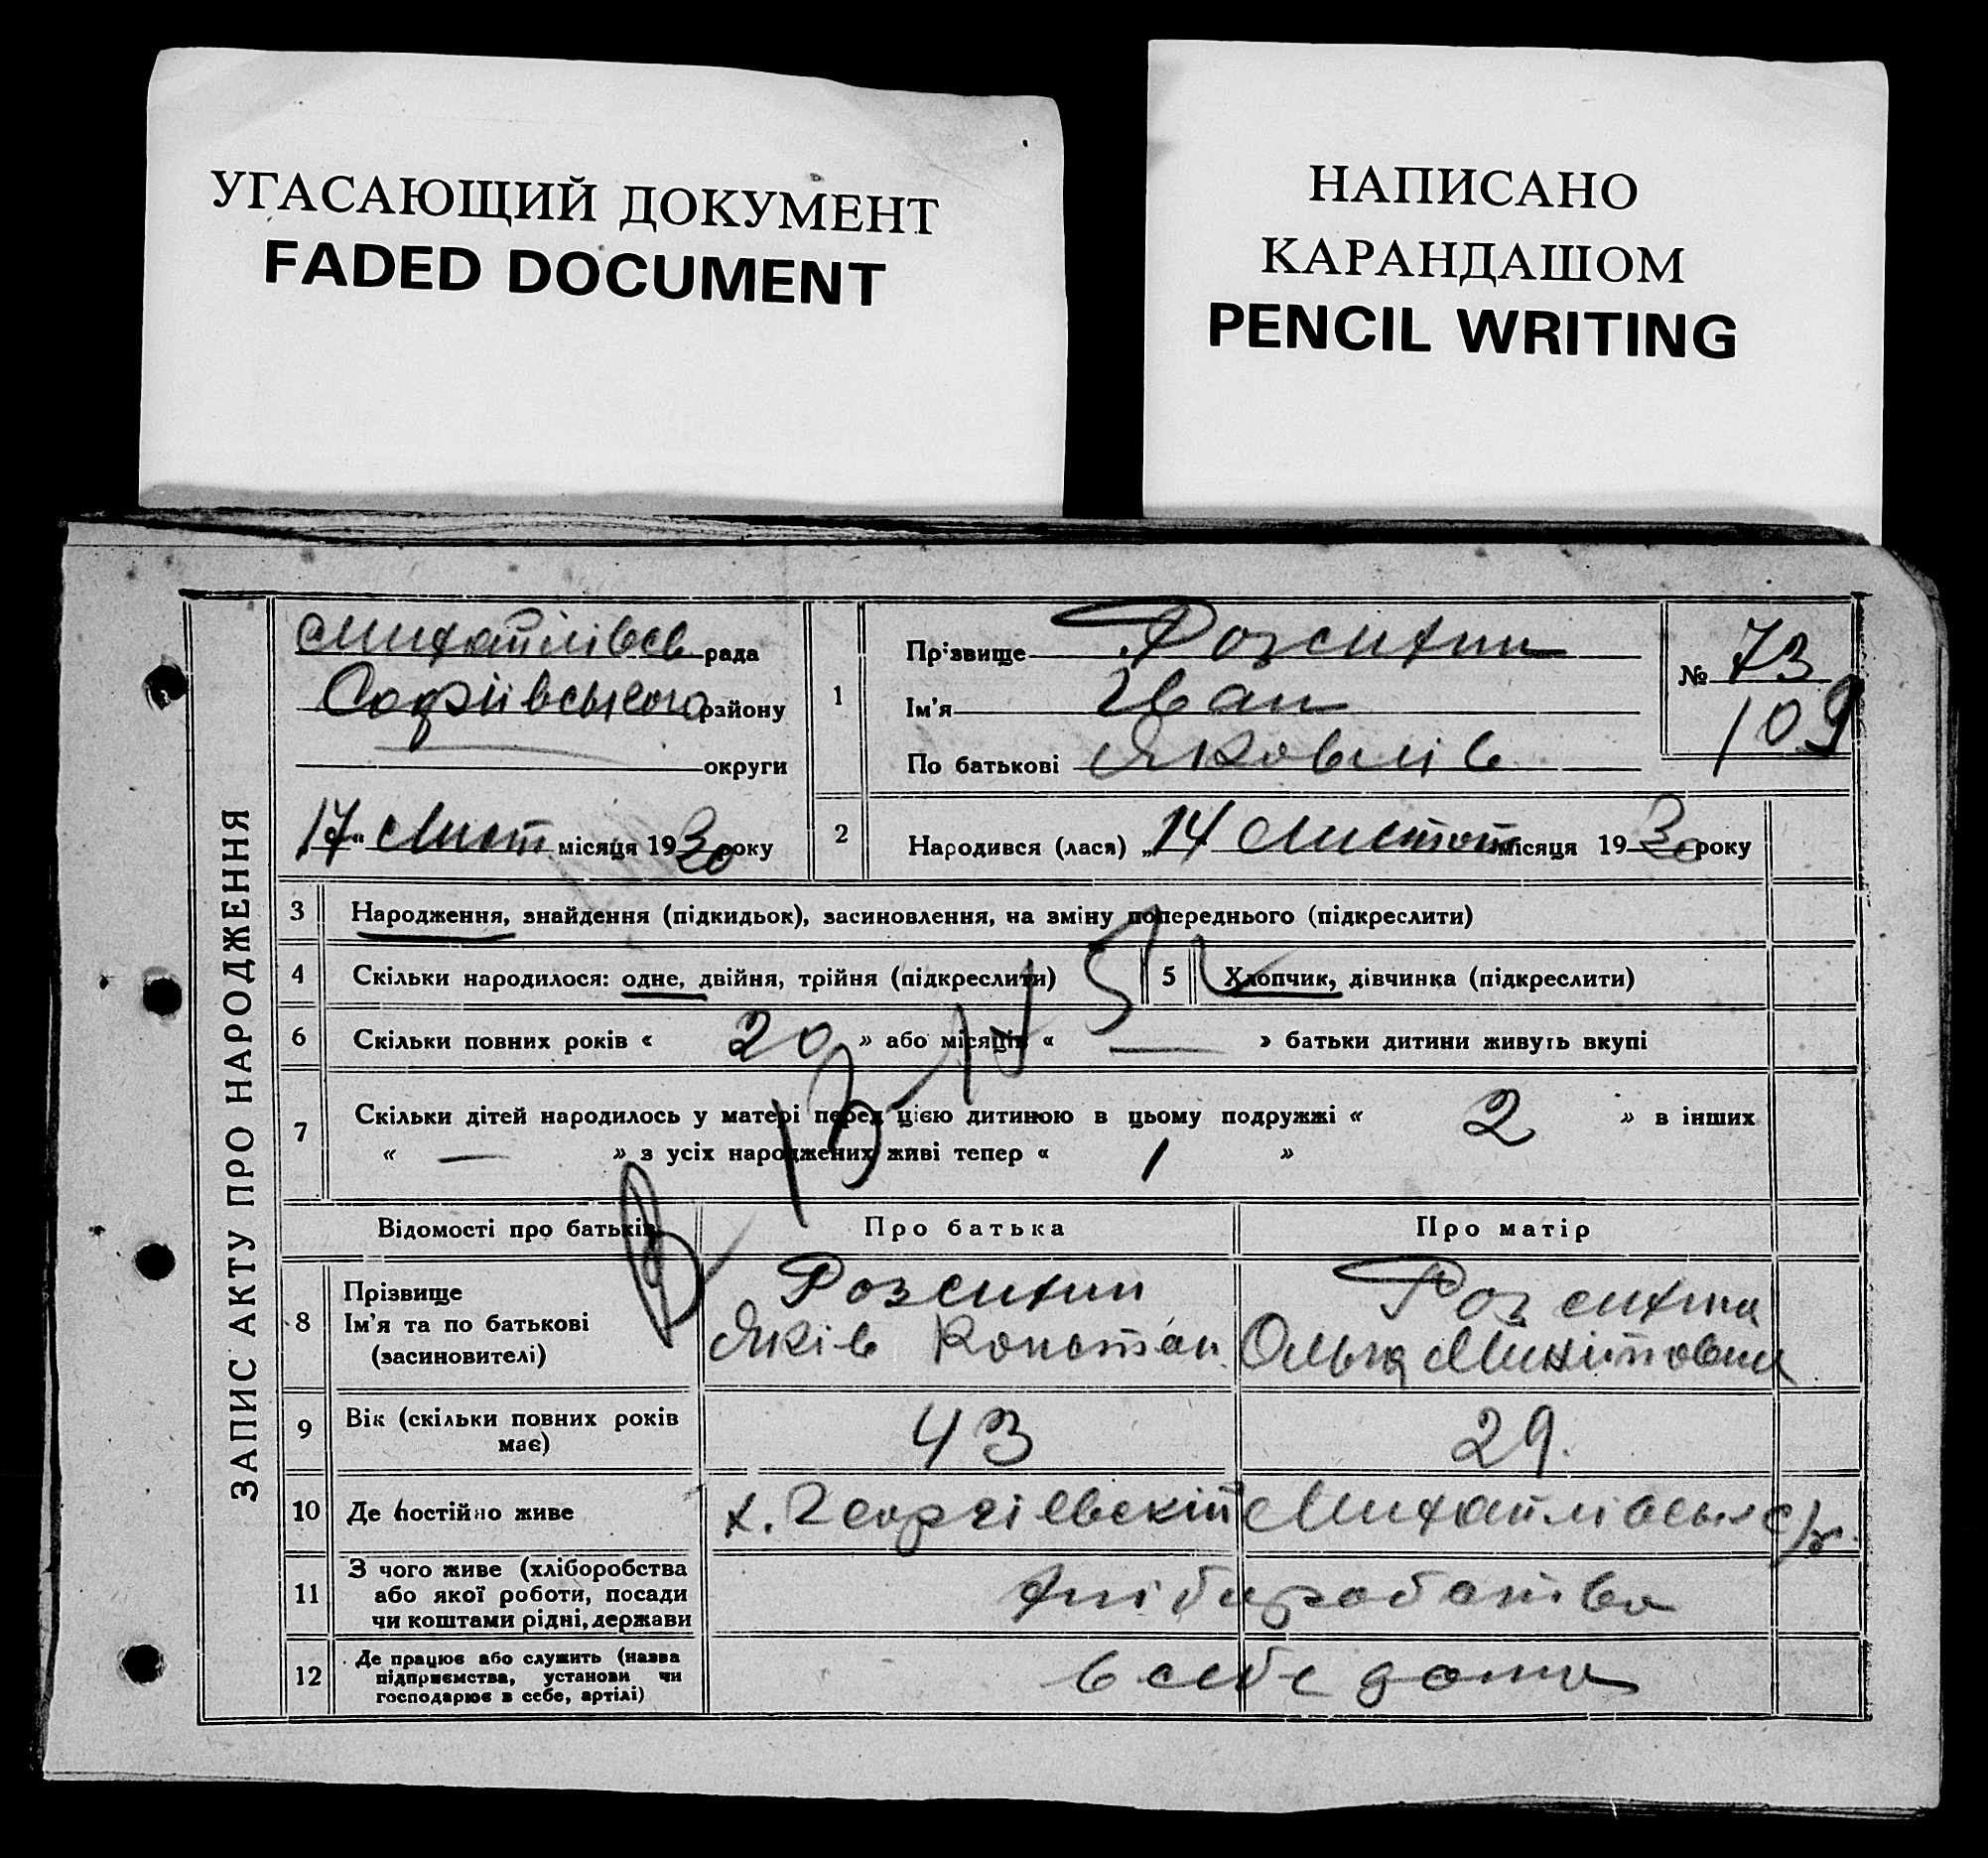 УГАСАЮЩИЙ ДОКУМЕНТ
FADED DOCUMENT
НАПИСАНО
КАРАНДАШОМ
PENCIL WRITING
ЗАПИС АКТУ ПРО НАРОДЖЕННЯ
Михайлівсь рада
Софіівського району
округи
17 " Лист місяця 1930 року
1
Прізвище Розсихин
Ім'я Іван
По батькові Яковлів
№ 73
109
2 Народився (лася) „ 14 Листоп місяця 1930 року
3 Народження, знайдення (підкидьок), засиновлення, на зміну попереднього (підкреслити)
4 Скільки народилося: одне, двійня, трійня (підкреслити) 5 Хлопчик, дівчинка (підкреслити)
6 Скільки повних років « 20 » або місяців « — » батьки дитини живуть вкупі
7 Скільки дітей народилось у матері перед цією дитиною в цьому подружжі « 2 » в інших
« — » з усіх народжених живі тепер « 1 »
Відомості про батьків Про батька Про матір
8 Прізвище Розсихин Розсихина
Ім'я та по батькові Яків Констан. Ольга
(засиновителі)
9 Вік (скільки повних років 43 29.
має)
10 Де постійно живе х. Георгіевский Михайлівськ с/р.
11 З чого живе (хліборобства
або якої роботи, посади
чи коштами рідні, держави
хліборобство
12 Де працює або служить (назва
підприємства, установи чи
господарює в себе, артілі)
в себе дома